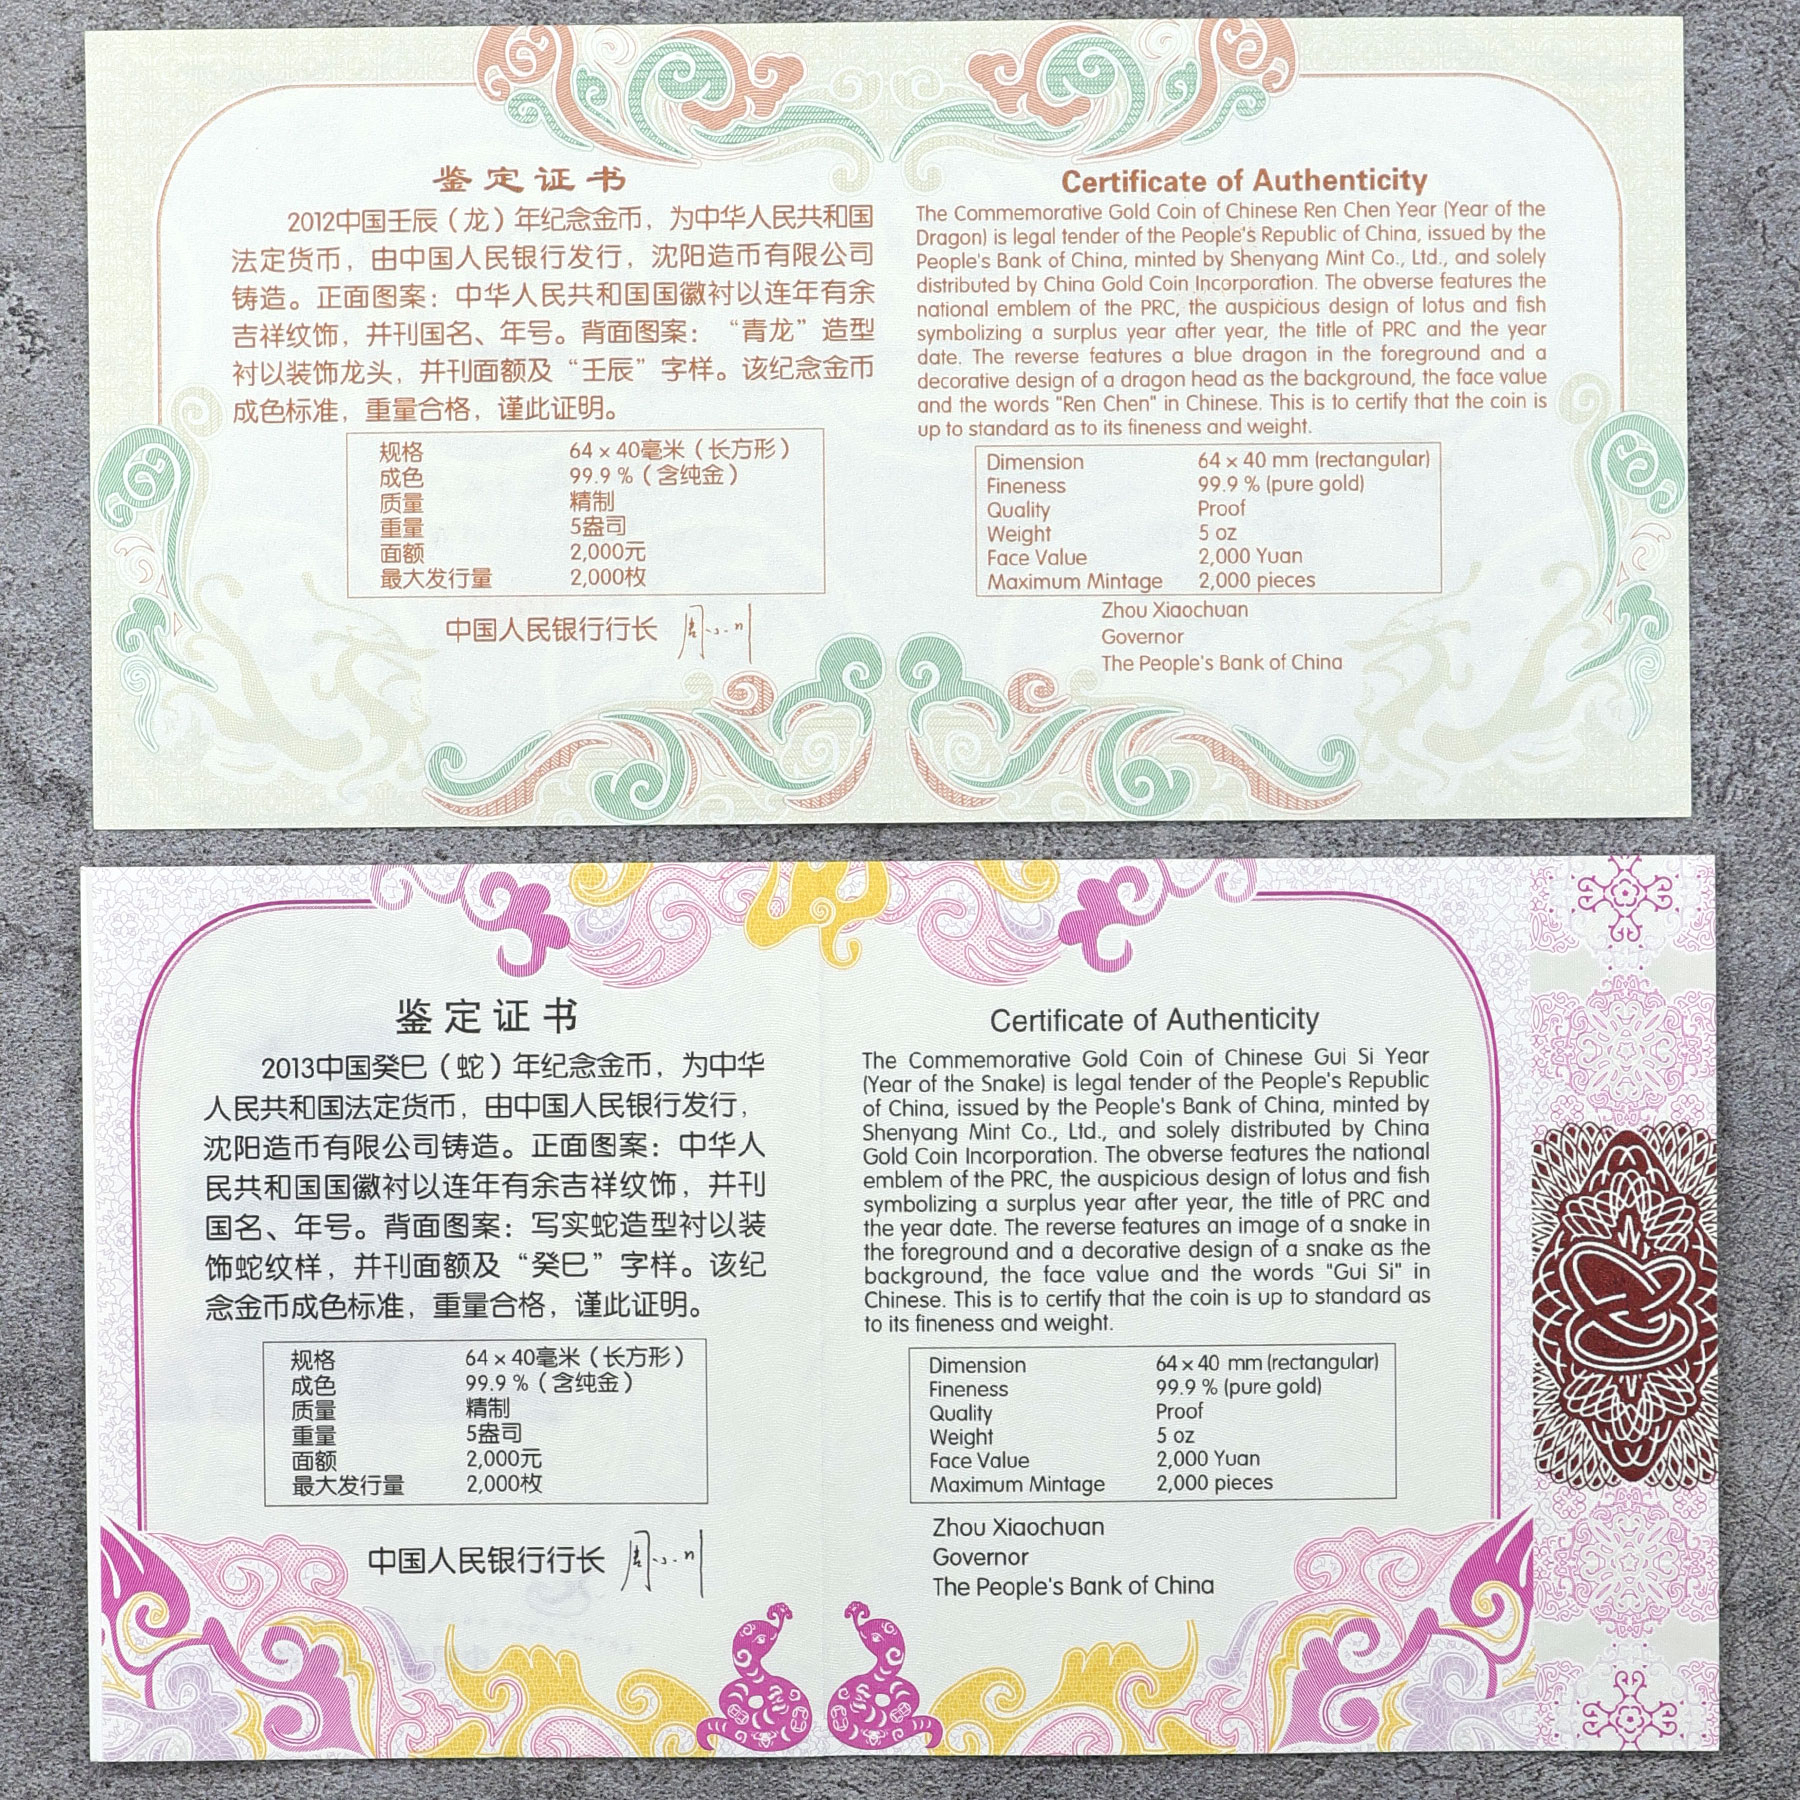 鉴定证书
2012中国壬辰（龙）年纪念金币，为中华人民共和国
法定货币，由中国人民银行发行，沈阳造币有限公司
铸造。正面图案：中华人民共和国国徽衬以连年有余
吉祥纹饰，并刊国名、年号。背面图案：“青龙”造型
衬以装饰龙头，并刊面额及“壬辰”字样。该纪念金币
成色标准，重量合格，谨此证明。
规格 64×40毫米（长方形）
成色 99.9%（含纯金）
质量 精制
重量 5盎司
面额 2,000元
最大发行量 2,000枚
中国人民银行行长 周小川
Certificate of Authenticity
The Commemorative Gold Coin of Chinese Ren Chen Year (Year of the
Dragon) is legal tender of the People's Republic of China, issued by the
People's Bank of China, minted by Shenyang Mint Co., Ltd., and solely
distributed by China Gold Coin Incorporation. The obverse features the
national emblem of the PRC, the auspicious design of lotus and fish
symbolizing a surplus year after year, the title of PRC and the year
date. The reverse features a blue dragon in the foreground and a
decorative design of a dragon head as the background, the face value
and the words "Ren Chen" in Chinese. This is to certify that the coin is
up to standard as to its fineness and weight.
Dimension 64 × 40 mm (rectangular)
Fineness 99.9 % (pure gold)
Quality Proof
Weight 5 oz
Face Value 2,000 Yuan
Maximum Mintage 2,000 pieces
Zhou Xiaochuan
Governor
The People's Bank of China
鉴定证书
2013中国癸巳（蛇）年纪念金币，为中华
人民共和国法定货币，由中国人民银行发行，
沈阳造币有限公司铸造。正面图案：中华人
民共和国国徽衬以连年有余吉祥纹饰，并刊
国名、年号。背面图案：写实蛇造型衬以装
饰蛇纹样，并刊面额及“癸巳”字样。该纪
念金币成色标准，重量合格，谨此证明。
规格 64×40毫米（长方形）
成色 99.9%（含纯金）
质量 精制
重量 5盎司
面额 2,000元
最大发行量 2,000枚
中国人民银行行长 周小川
Certificate of Authenticity
The Commemorative Gold Coin of Chinese Gui Si Year
(Year of the Snake) is legal tender of the People's Republic
of China, issued by the People's Bank of China, minted by
Shenyang Mint Co., Ltd., and solely distributed by China
Gold Coin Incorporation. The obverse features the national
emblem of the PRC, the auspicious design of lotus and fish
symbolizing a surplus year after year, the title of PRC and
the year date. The reverse features an image of a snake in
the foreground and a decorative design of a snake as the
background, the face value and the words "Gui Si" in
Chinese. This is to certify that the coin is up to standard as
to its fineness and weight.
Dimension 64 × 40 mm (rectangular)
Fineness 99.9 % (pure gold)
Quality Proof
Weight 5 oz
Face Value 2,000 Yuan
Maximum Mintage 2,000 pieces
Zhou Xiaochuan
Governor
The People's Bank of China